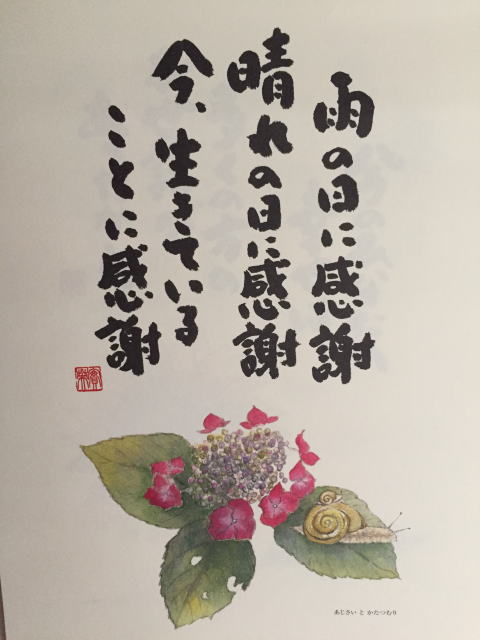 雨の日に感謝
晴れの日に感謝
今、生きている
ことに感謝
あじさい と かたつむり